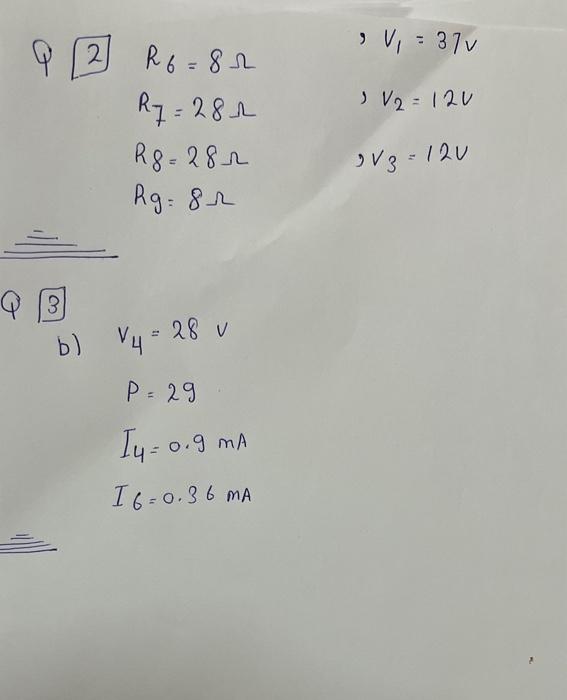 Q 2 R6 = 8 Ω , V1 = 37v
R7 = 28 Ω , V2 = 12V
R8 = 28 Ω , V3 = 12V
R9 = 8 Ω
Q 3
b) V4 = 28 v
P = 29
I4 = 0.9 mA
I6 = 0.36 mA